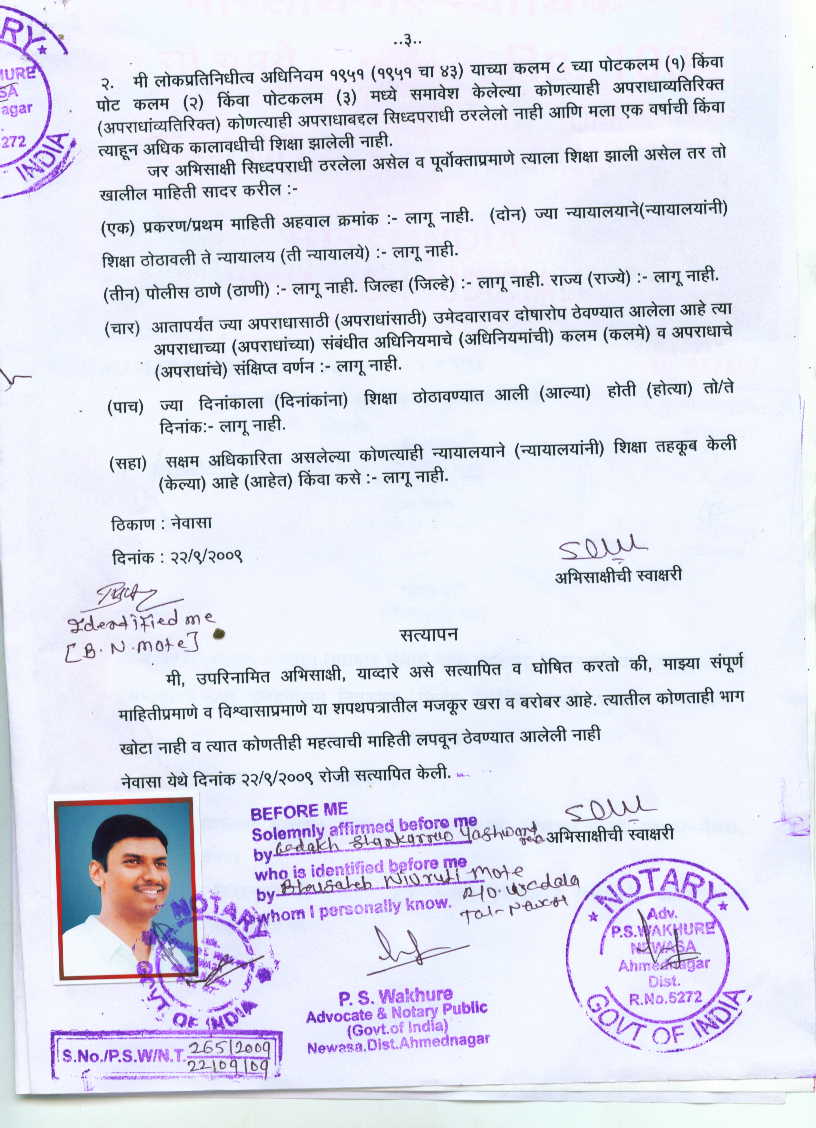 ..३..
२. मी लोकप्रतिनिधीत्व अधिनियम १९५१ (१९५१ चा ४३) याच्या कलम ८ च्या पोटकलम (१) किंवा
पोट कलम (२) किंवा पोटकलम (३) मध्ये समावेश केलेल्या कोणत्याही अपराधाव्यतिरिक्त
(अपराधांव्यतिरिक्त) कोणत्याही अपराधाबद्दल सिध्दपराधी ठरलेलो नाही आणि मला एक वर्षाची किंवा
त्याहून अधिक कालावधीची शिक्षा झालेली नाही.
जर अभिसाक्षी सिध्दपराधी ठरलेला असेल व पूर्वोक्ताप्रमाणे त्याला शिक्षा झाली असेल तर तो
खालील माहिती सादर करील :-
(एक) प्रकरण/प्रथम माहिती अहवाल क्रमांक :- लागू नाही. (दोन) ज्या न्यायालयाने(न्यायालयांनी)
शिक्षा ठोठावली ते न्यायालय (ती न्यायालये) :- लागू नाही.
(तीन) पोलीस ठाणे (ठाणी) :- लागू नाही. जिल्हा (जिल्हे) :- लागू नाही. राज्य (राज्ये) :- लागू नाही.
(चार) आतापर्यंत ज्या अपराधासाठी (अपराधांसाठी) उमेदवारावर दोषारोप ठेवण्यात आलेला आहे त्या
अपराधाच्या (अपराधांच्या) संबंधीत अधिनियमाचे (अधिनियमांची) कलम (कलमे) व अपराधाचे
(अपराधांचे) संक्षिप्त वर्णन :- लागू नाही.
(पाच) ज्या दिनांकाला (दिनांकांना) शिक्षा ठोठावण्यात आली (आल्या) होती (होत्या) तो/ते
दिनांक:- लागू नाही.
(सहा) सक्षम अधिकारिता असलेल्या कोणत्याही न्यायालयाने (न्यायालयांनी) शिक्षा तहकूब केली
(केल्या) आहे (आहेत) किंवा कसे :- लागू नाही.
ठिकाण : नेवासा
दिनांक : २२/९/२००९
अभिसाक्षीची स्वाक्षरी
Identified me
[B. N. Mote]
सत्यापन
मी, उपरिनामित अभिसाक्षी, याव्दारे असे सत्यापित व घोषित करतो की, माझ्या संपूर्ण
माहितीप्रमाणे व विश्वासाप्रमाणे या शपथपत्रातील मजकूर खरा व बरोबर आहे. त्यातील कोणताही भाग
खोटा नाही व त्यात कोणतीही महत्वाची माहिती लपवून ठेवण्यात आलेली नाही
नेवासा येथे दिनांक २२/९/२००९ रोजी सत्यापित केली.
BEFORE ME
Solemnly affirmed before me
by Gadakh Shankarrao Yashwantrao
अभिसाक्षीची स्वाक्षरी
who is identified before me
by Bhausaheb Nivruti Mote
R/O. Wadala
whom I personally know.
NOTARY
GOVT OF INDIA
P. S. Wakhure
Advocate & Notary Public
(Govt.of India)
Newasa.Dist.Ahmednagar
NOTARY
Adv.
P.S.WAKHURE
NEWASA
Ahmednagar
Dist.
R.No.5272
GOVT OF INDIA
S.No./P.S.W/N.T. 265/2009
22/09/09